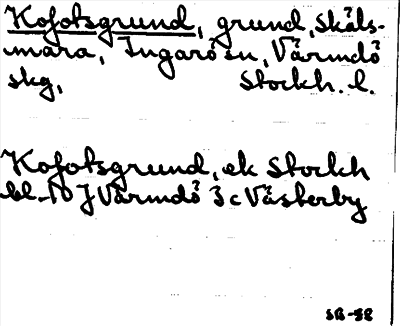 Kofotsgrund, grund, Skåls-
mara, Ingarö sn, Värmdö
skg, Stockh. l.
Kofotsgrund, ek Stockh
bl. 10 J Värmdö 3 c Västerby
SB-58